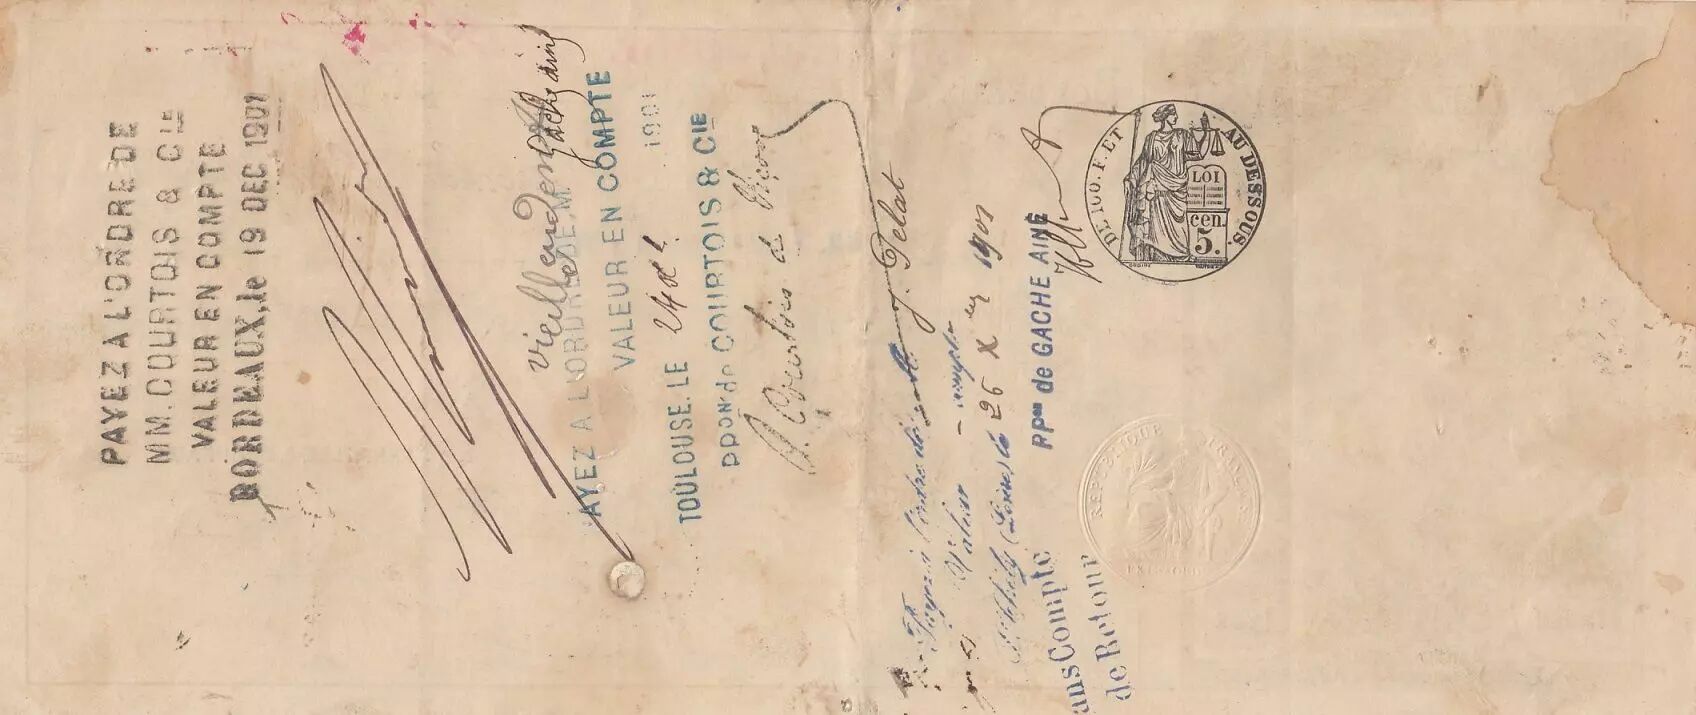 PAYEZ A L'ORDRE DE
MM. COURTOIS & CIE
VALEUR EN COMPTE
BORDEAUX, le 19 DEC 1901
Gache ainé
PAYEZ A L'ORDRE DE M
VALEUR EN COMPTE
TOULOUSE. LE 24 1901
ppon de COURTOIS & CIE
Payez à l'ordre de M. J. Pelat
Valeur en compte
(Loire) le 26 Xbre 1901
PPon de GACHE AINÉ
Sans Compte
de Retour
DE 100. F. ET AU DESSOUS.
LOI
5. cen.
REPUBLIQUE FRANCAISE